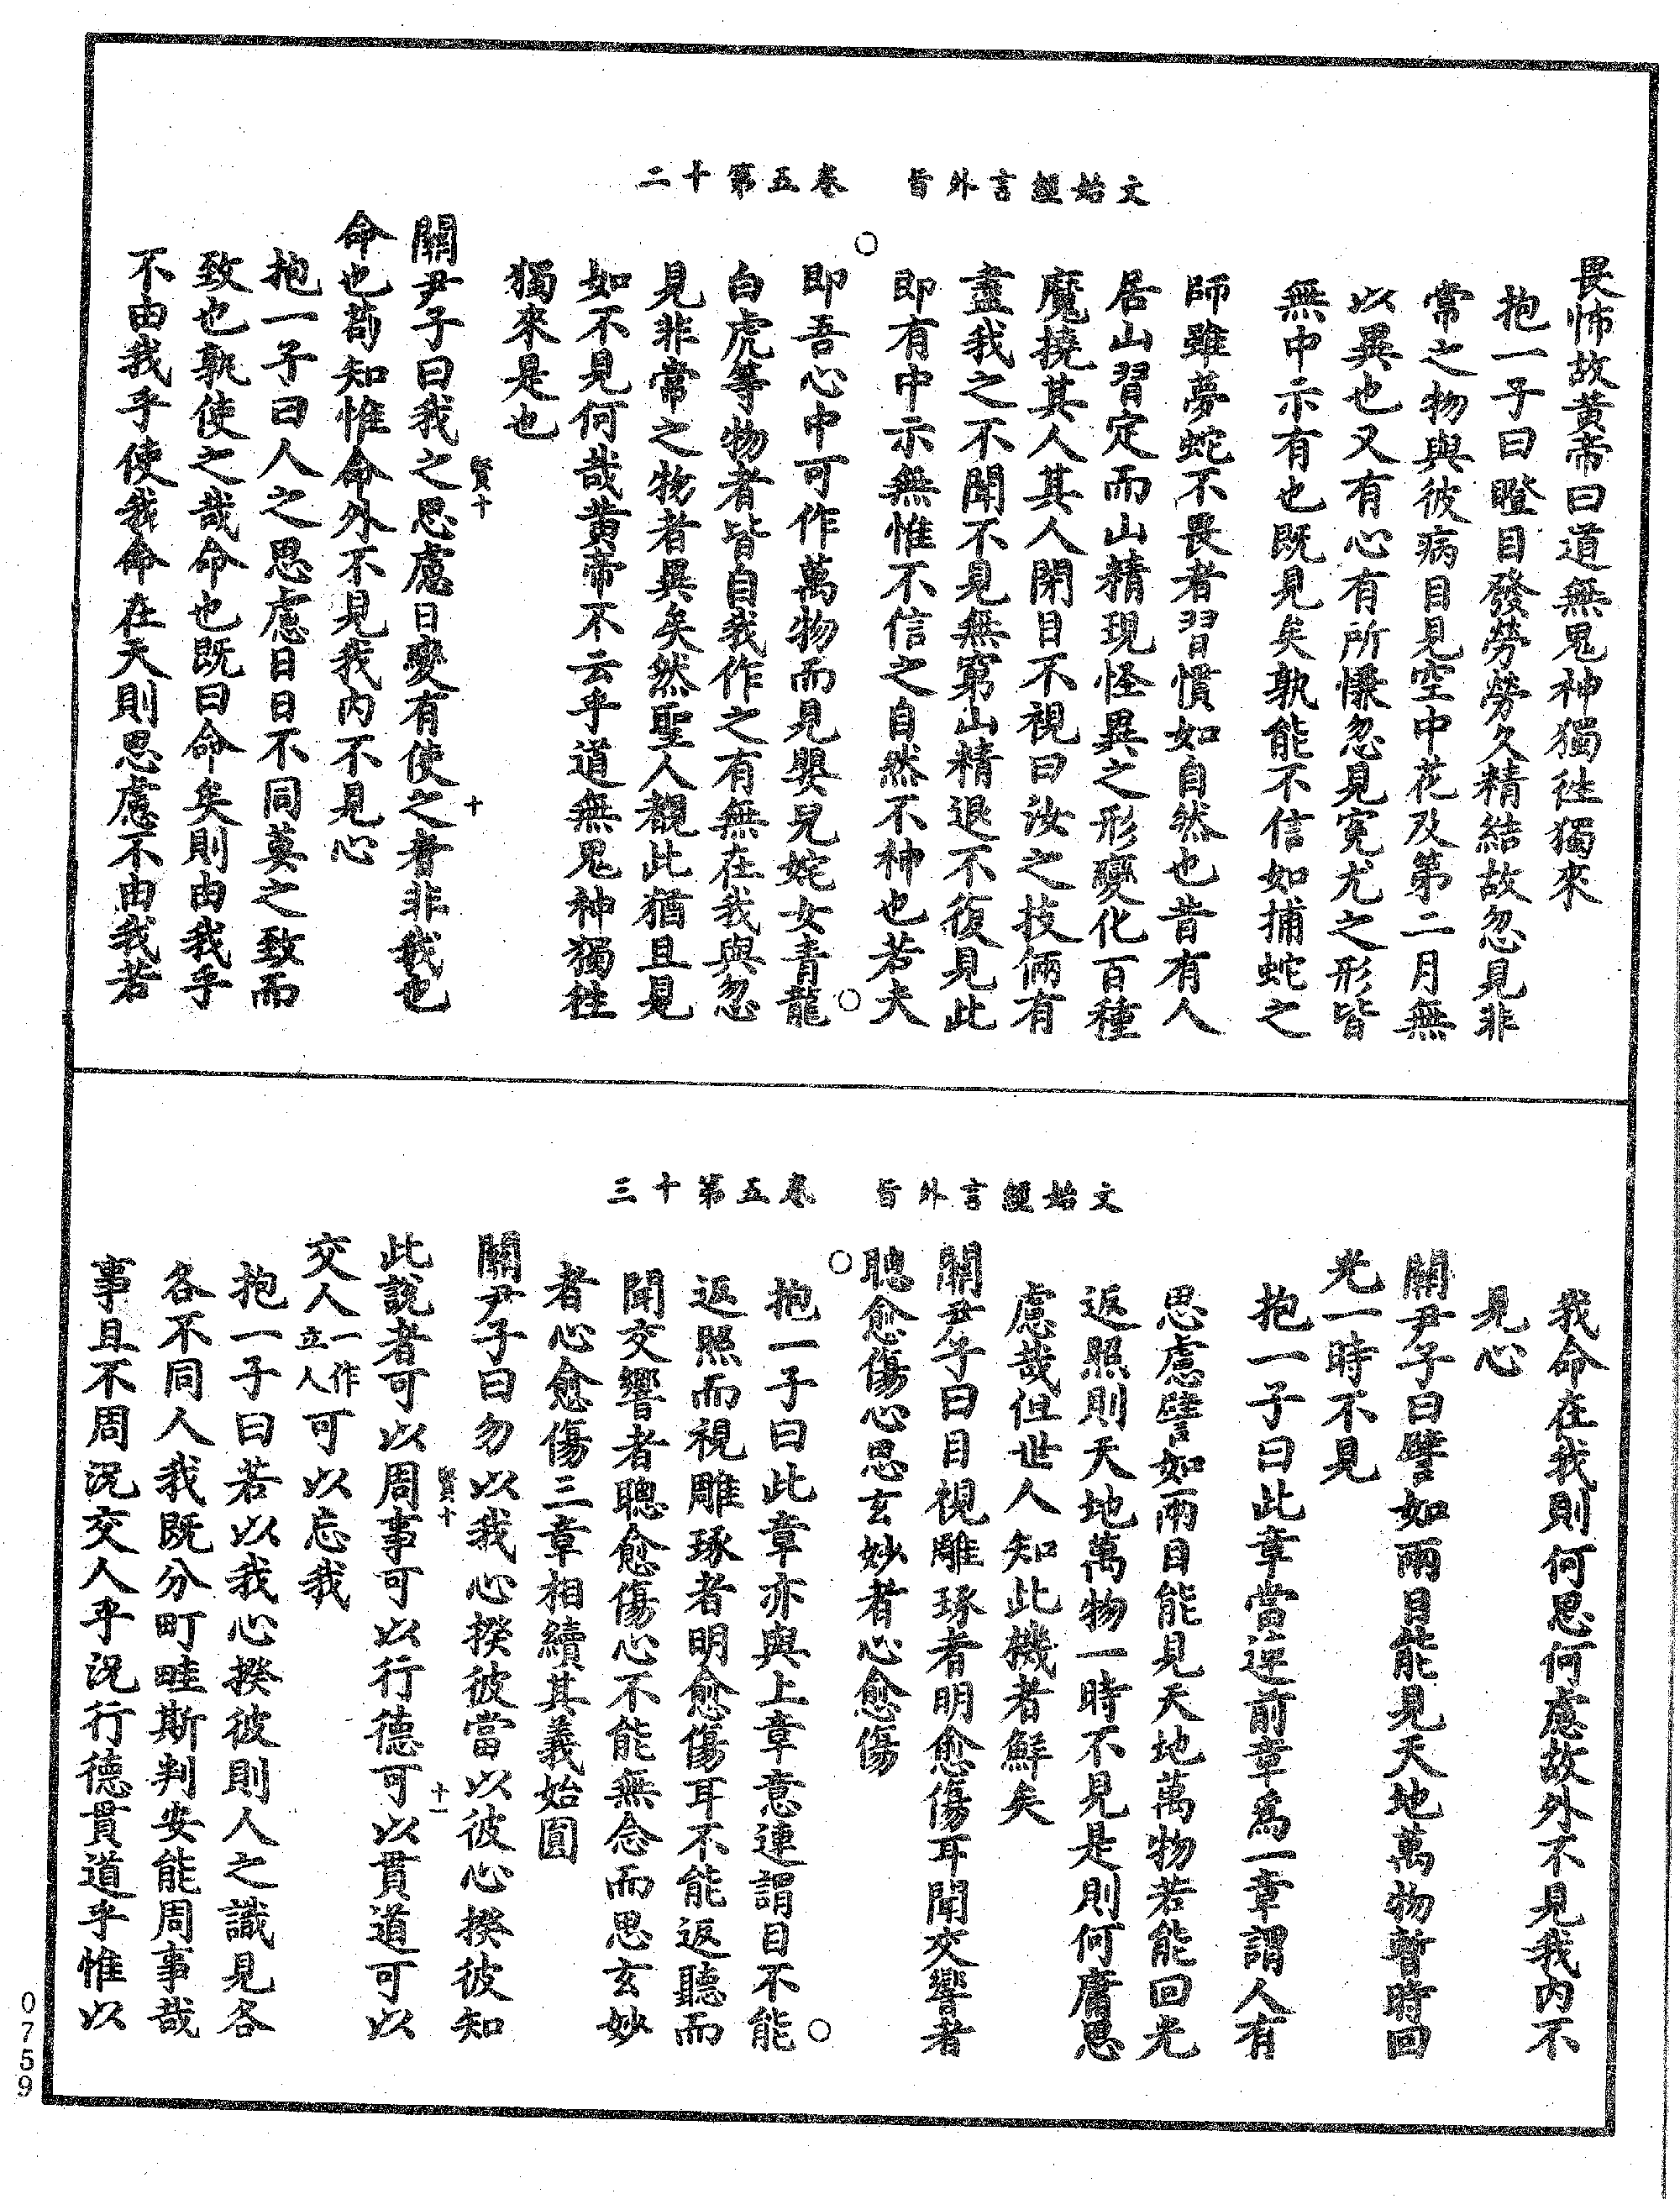 文始經言外旨　卷五第十二
畏怖故黃帝曰道無鬼神獨往獨來
抱一子曰瞪目發勞勞久精結故忽見非
常之物與彼病目見空中花及第二月無
以異也又有心有所慊忽見冤尤之形皆
無中示有也既見矣孰能不信如捕蛇之
師雖夢蛇不畏者習慣如自然也昔有人
居山習定而山精現怪異之形變化百種
魔撓其人其人閉目不視曰汝之技倆有
盡我之不聞不見無窮山精退不復見此
即有中示無惟不信之自然不神也若夫
即吾心中可作萬物而見嬰兒姹女青龍
白虎等物者皆自我作之有無在我與忽
見非常之物者異矣然聖人覩此猶且見
如不見何哉黃帝不云乎道無鬼神獨往
獨來是也
賢十　十
關尹子曰我之思慮日變有使之者非我也
命也苟知惟命外不見我內不見心
抱一子曰人之思慮日日不同莫之致而
致也孰使之哉命也既曰命矣則由我乎
不由我乎使我命在天則思慮不由我若
文始經言外旨　卷五第十三
我命在我則何思何慮故外不見我內不
見心
關尹子曰譬如兩目能見天地萬物暫時回
光一時不見
抱一子曰此章當連前章爲一章謂人有
思慮譬如兩目能見天地萬物若能回光
返照則天地萬物一時不見是則何庸思
慮哉但世人知此機者鮮矣
關尹子曰目視雕琢者明愈傷耳聞交響者
聰愈傷心思玄妙者心愈傷
抱一子曰此章亦與上章意連謂目不能
返照而視雕琢者明愈傷耳不能返聽而
聞交響者聰愈傷心不能無念而思玄妙
者心愈傷三章相續其義始圓
關尹子曰勿以我心揆彼當以彼心揆彼知
賢十　十一
此說者可以周事可以行德可以貫道可以
交人一作立人可以忘我
抱一子曰若以我心揆彼則人之識見各
各不同人我既分町畦斯判安能周事哉
事且不周況交人乎況行德貫道乎惟以
0759